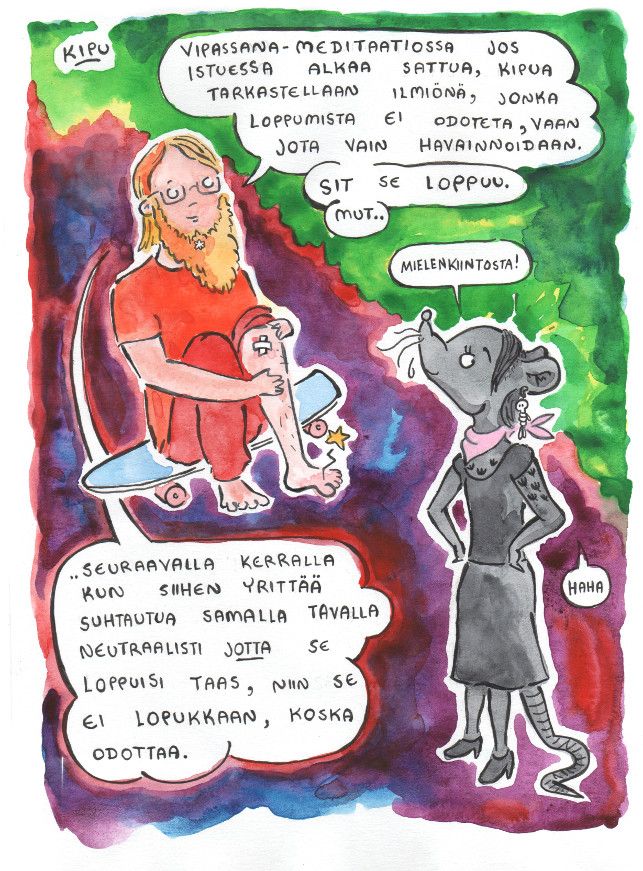 KIPU
VIPASSANA-MEDITAATIOSSA JOS
ISTUESSA ALKAA SATTUA, KIPUA
TARKASTELLAAN ILMIÖNÄ, JONKA
LOPPUMISTA EI ODOTETA, VAAN
JOTA VAIN HAVAINNOIDAAN.
SIT SE LOPPUU.
MUT..
MIELENKIINTOSTA!
..SEURAAVALLA KERRALLA
KUN SIIHEN YRITTÄÄ
SUHTAUTUA SAMALLA TAVALLA
NEUTRAALISTI JOTTA SE
LOPPUISI TAAS, NIIN SE
EI LOPUKKAAN, KOSKA
ODOTTAA.
HAHA